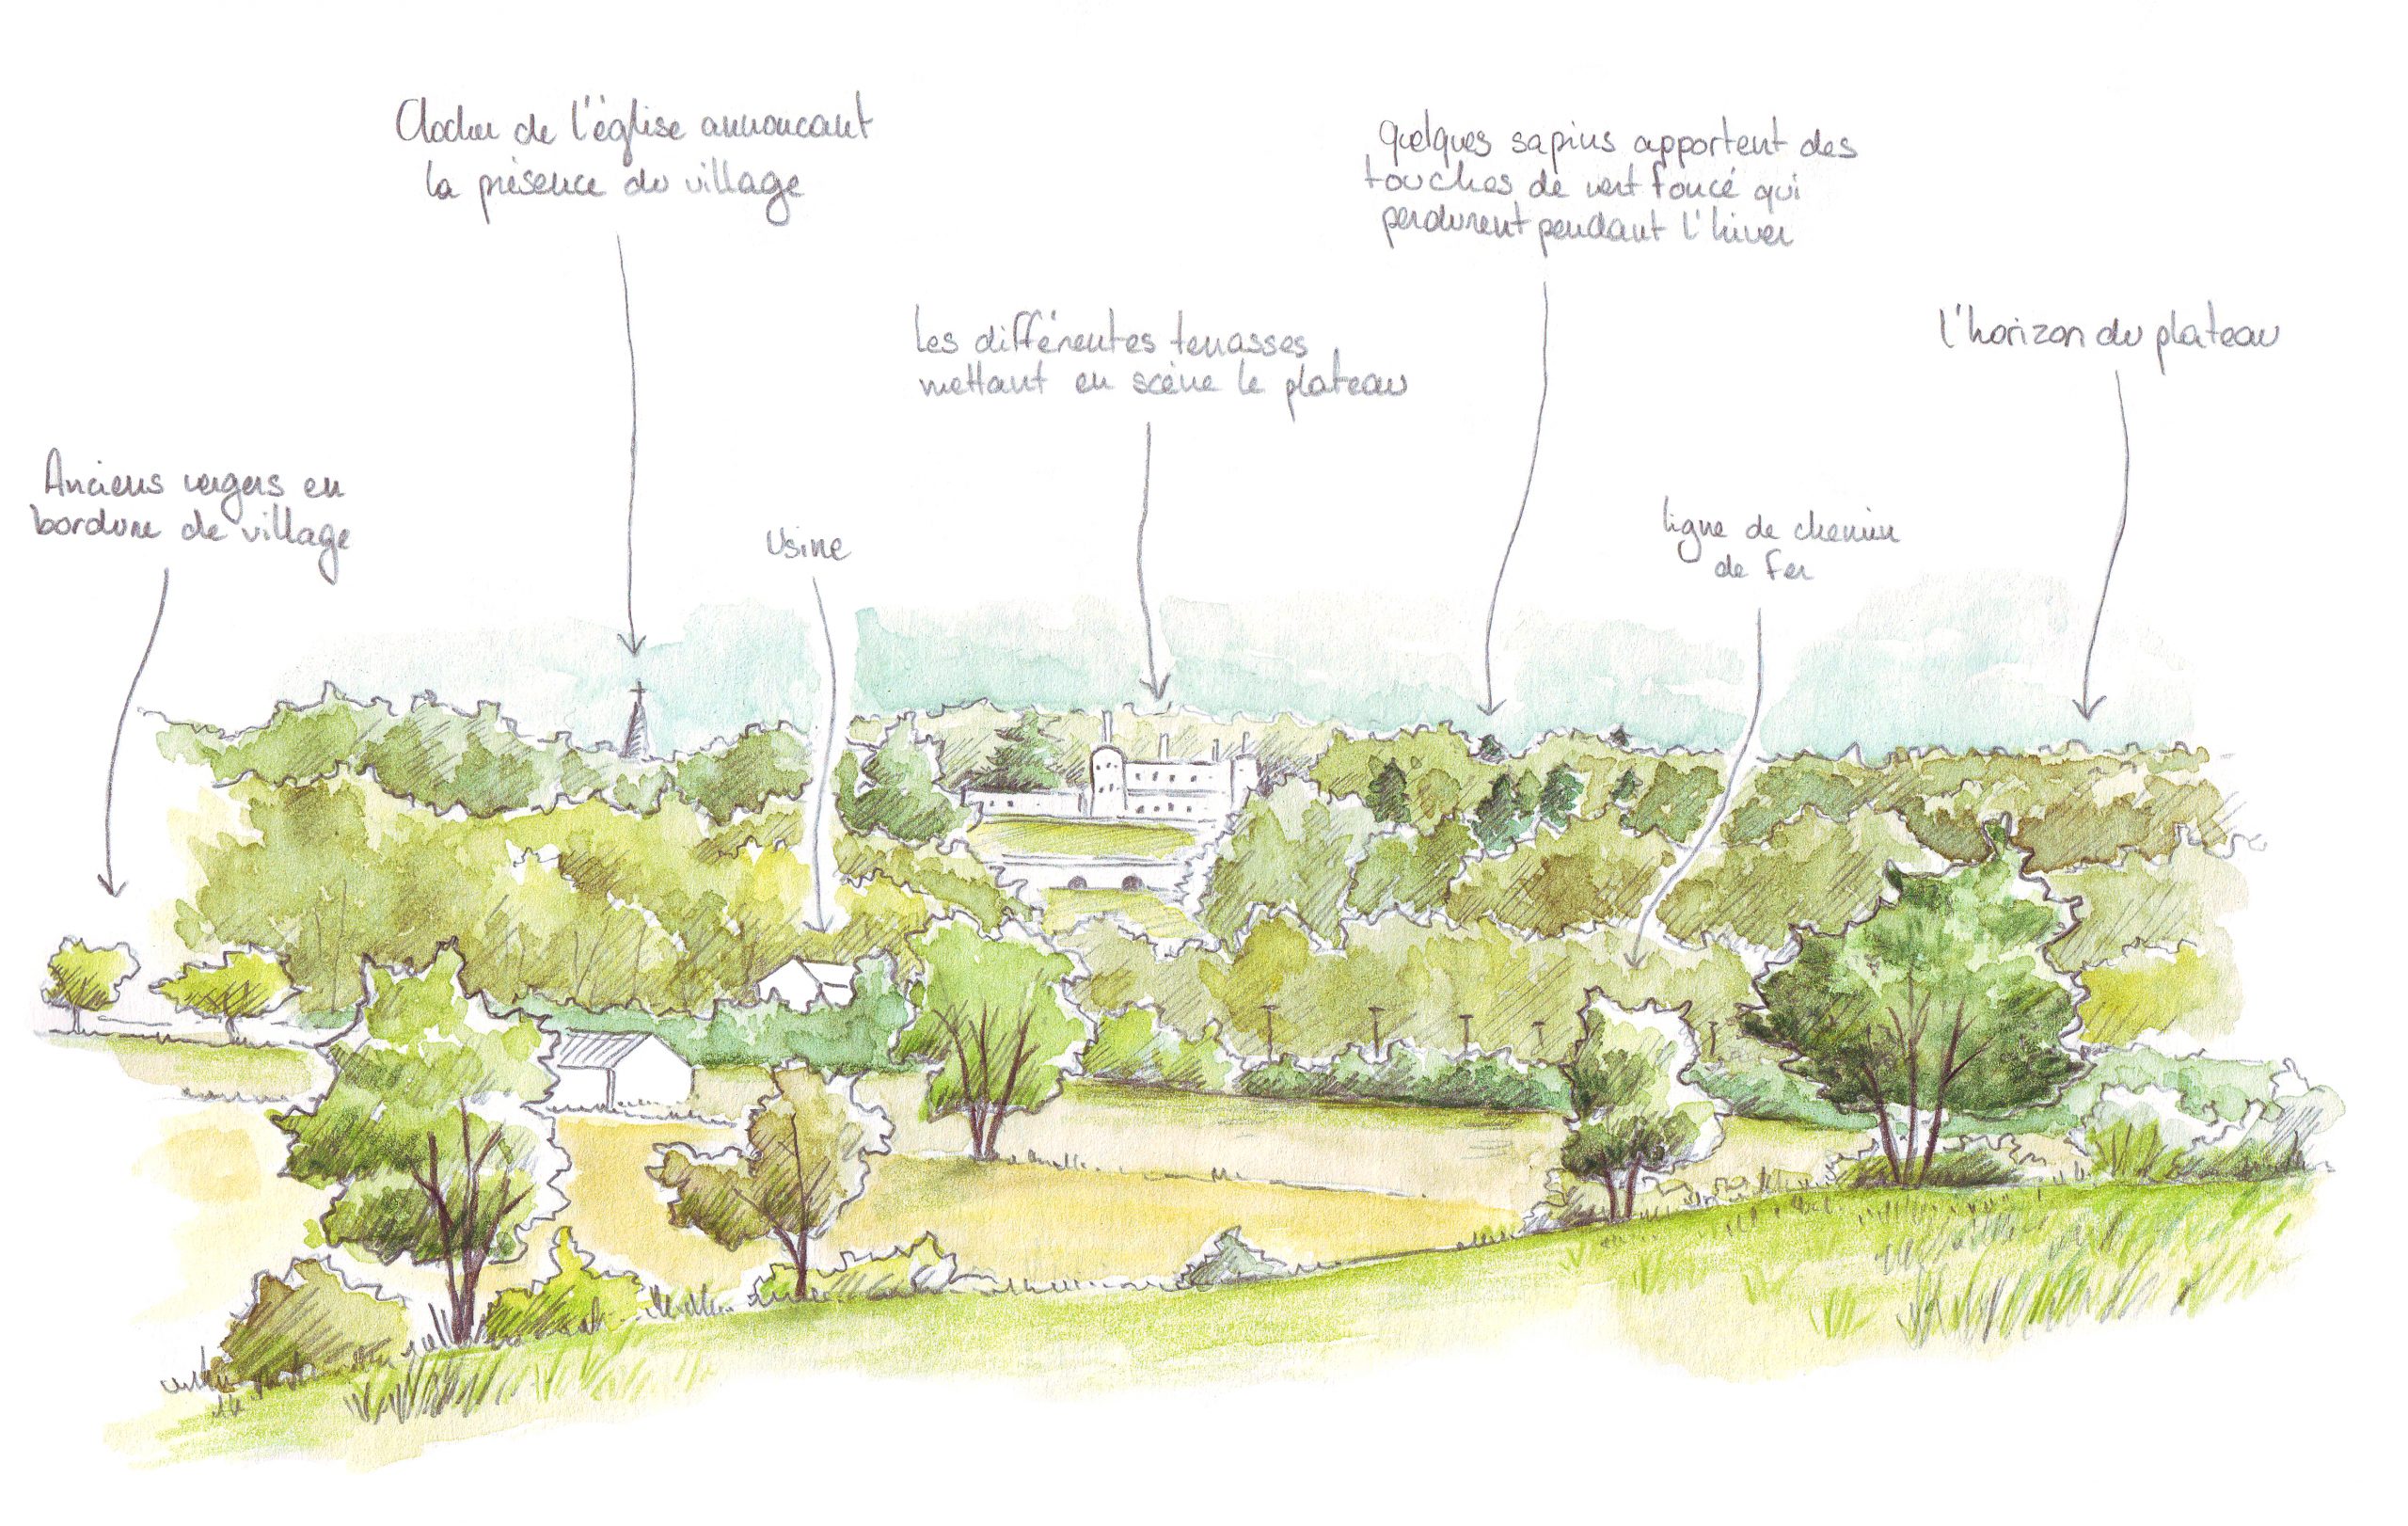 Clocher de l'église annoncant
la présence du village
Quelques sapins apportent des
touches de vert foncé qui
perdurent pendant l'hiver
Les différentes terrasses
mettant en scène le plateau
l'horizon du plateau
Anciens vergers en
bordure de village
Usine
ligne de chemin
de fer